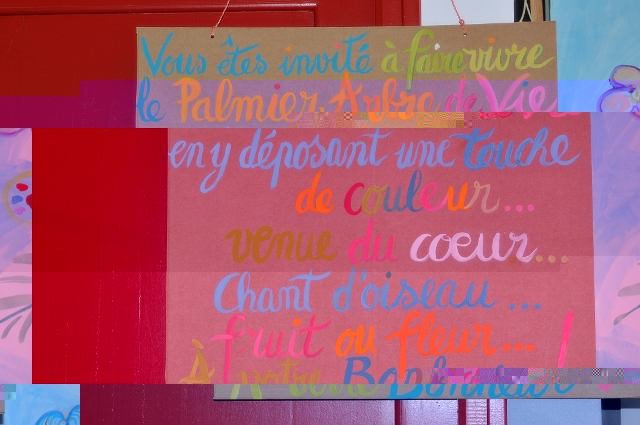 Vous êtes invité à faire vivre
le Palmier. Arbre de Vie
en y déposant une touche
de couleur...
venue du coeur...
Chant d'oiseau ...
fruit ou fleur... !
À votre